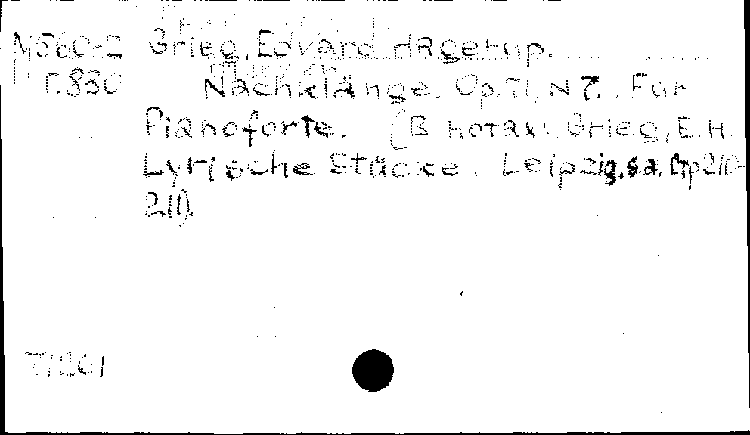 М560-2 Grieg, Edvard Hagerup.
Г.830 Nachklänge. Op.71, N 7. Für
Pianoforte. [В нотах: Grieg, E.H.
Lyrische Stücke. Leipzig, s.a.